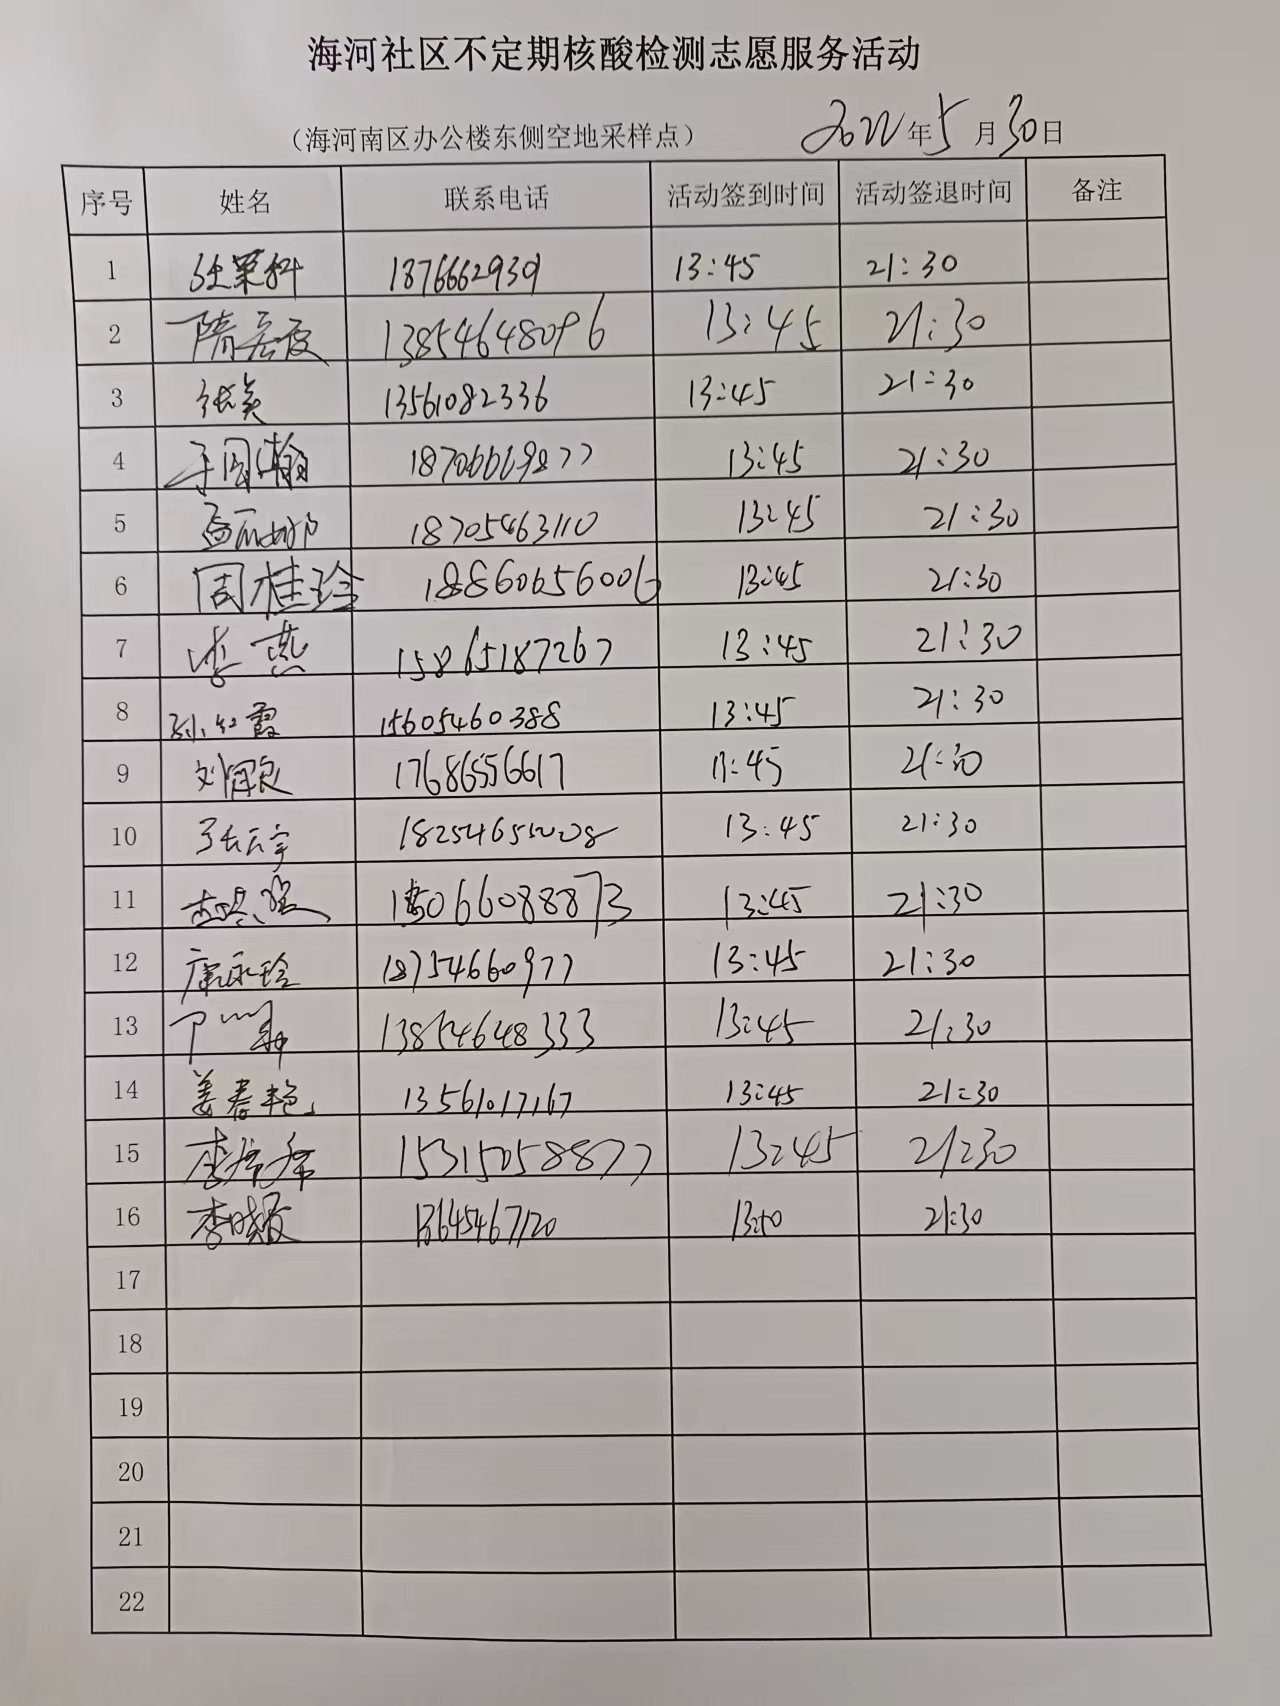 海河社区不定期核酸检测志愿服务活动
（海河南区办公楼东侧空地采样点） 2022年5月30日
序号 姓名 联系电话 活动签到时间 活动签退时间 备注
1 18766662939 13:45 21:30
2 13854648096 13:45 21:30
3 13561082336 13:45 21:30
4 13:45 21:30
5 孟丽娜 18705463110 13:45 21:30
6 周桂玲 18860656006 13:45 21:30
7 李燕 15865187267 13:45 21:30
8 孙红霞 15605460388 13:45 21:30
9 17686556617 21:30
10 张云宇 13:45 21:30
11 15066088873 13:45 21:30
12 康永玲 18754660977 13:45 21:30
13 13854648333 13:45 21:30
14 姜春艳 13561017167 13:45 21:30
15 15315058877 13:45 21:30
16 21:30
17
18
19
20
21
22